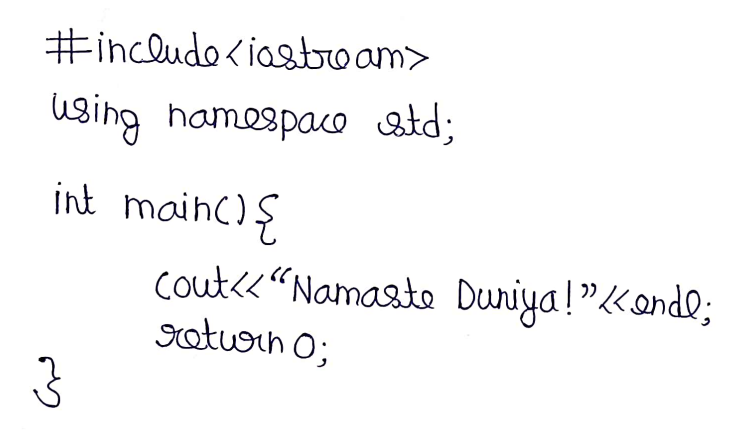 #include<iostream>
using namespace std;
int main(){
cout<<“Namaste Duniya!”<<endl;
return 0;
}